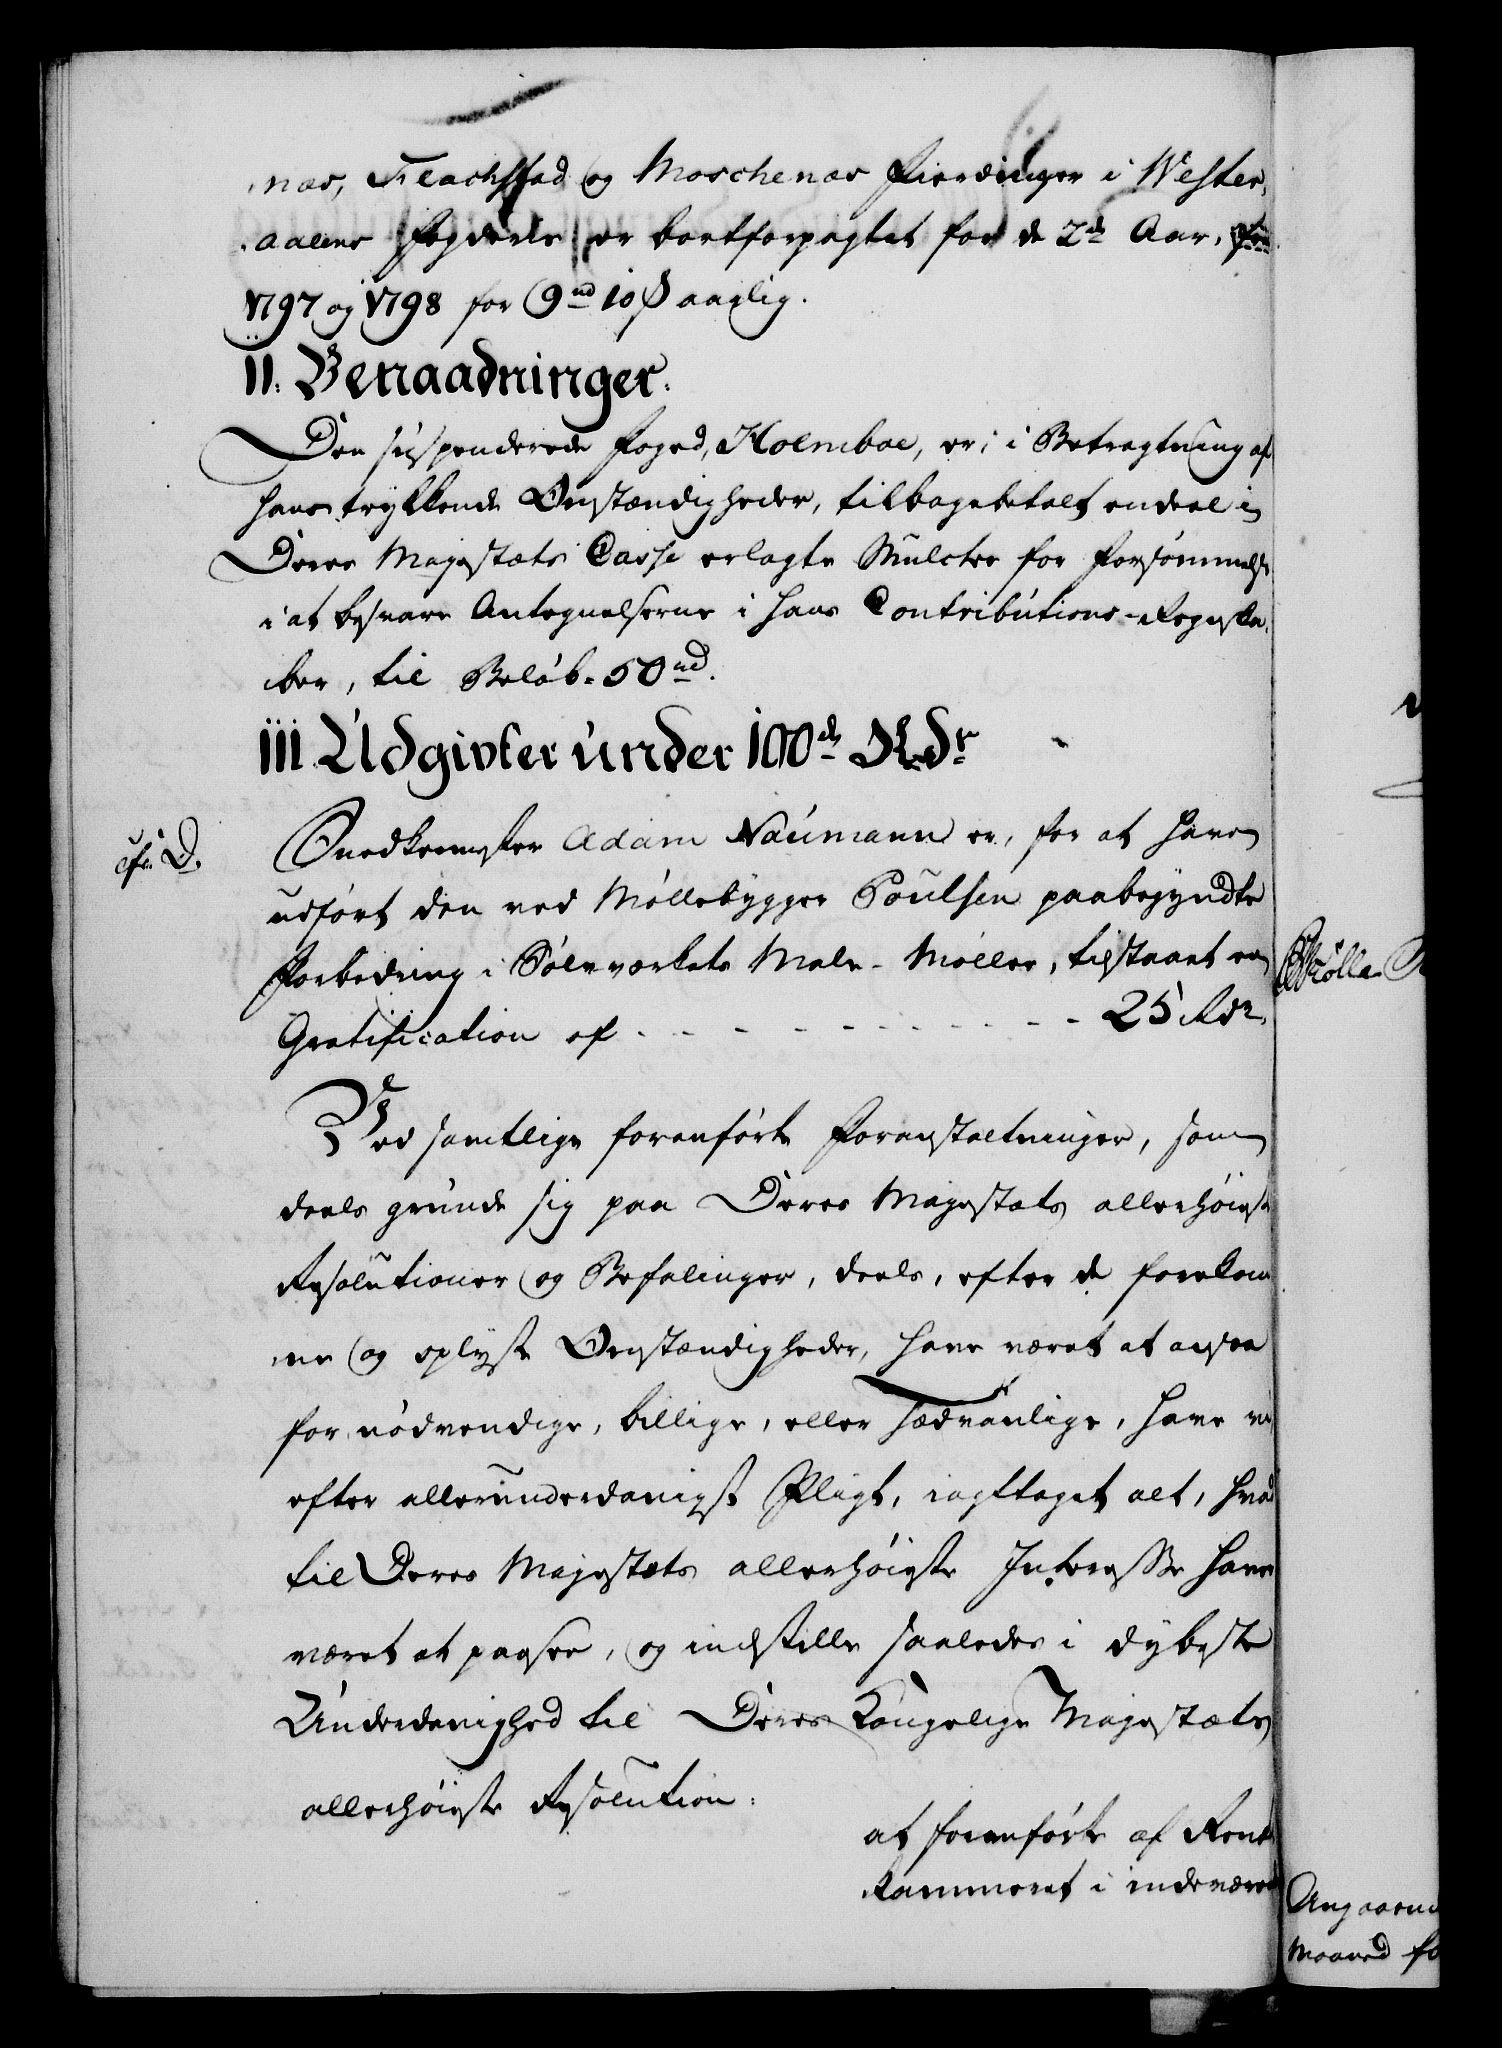 næs, Flachstad og Moschenæs Fierdinger i Wester-
aalens Fogderie er bortforpagtet for de 2de Aar,
1797 og 1798 for 9 rd 10 ß aarlig.
II. Benaadninger.
Den suspenderede Foged, Holmboe, er, i Betragtning af
hans trykkende Omstændigheder, tilbagebetalt endeel i
Deres Majestæts Casse erlagte Mulcter for Forsømmelse
i at besvare Antegnelserne i hans Contributions-Regnska-
ber, til Beløb 50 rd.
III. Udgivter under 100de Rdr
cfr. D.
Snedkermester Adam Naumann er, for at have
udført den ved Møllebygger Poulsen paabegyndte
Forbedring i Sølvværkets Male-Møller, tilstaaet en
Gratification af - - - - - - - - - 25 Rdr.
Ved samtlige foranførte Foranstaltninger, som
deels grunde sig paa Deres Majestæts allerhøieste
Resolutioner og Befalinger, deels, efter de forekom-
ne og oplyste Omstændigheder, have været at ansee
for nødvendige, billige, eller sædvanlige, have vi
efter allerunderdanigst Pligt, iagttaget alt, hvad
til Deres Majestæts allerhøieste Interesse have
været at paasee, og indstille saaledes i dybeste
Underdanighed til Deres Kongelige Majestæts
allerhøieste Resolution:
at foranførte af Rente
Kammeret i indevære
Angaaen
Maaned fo